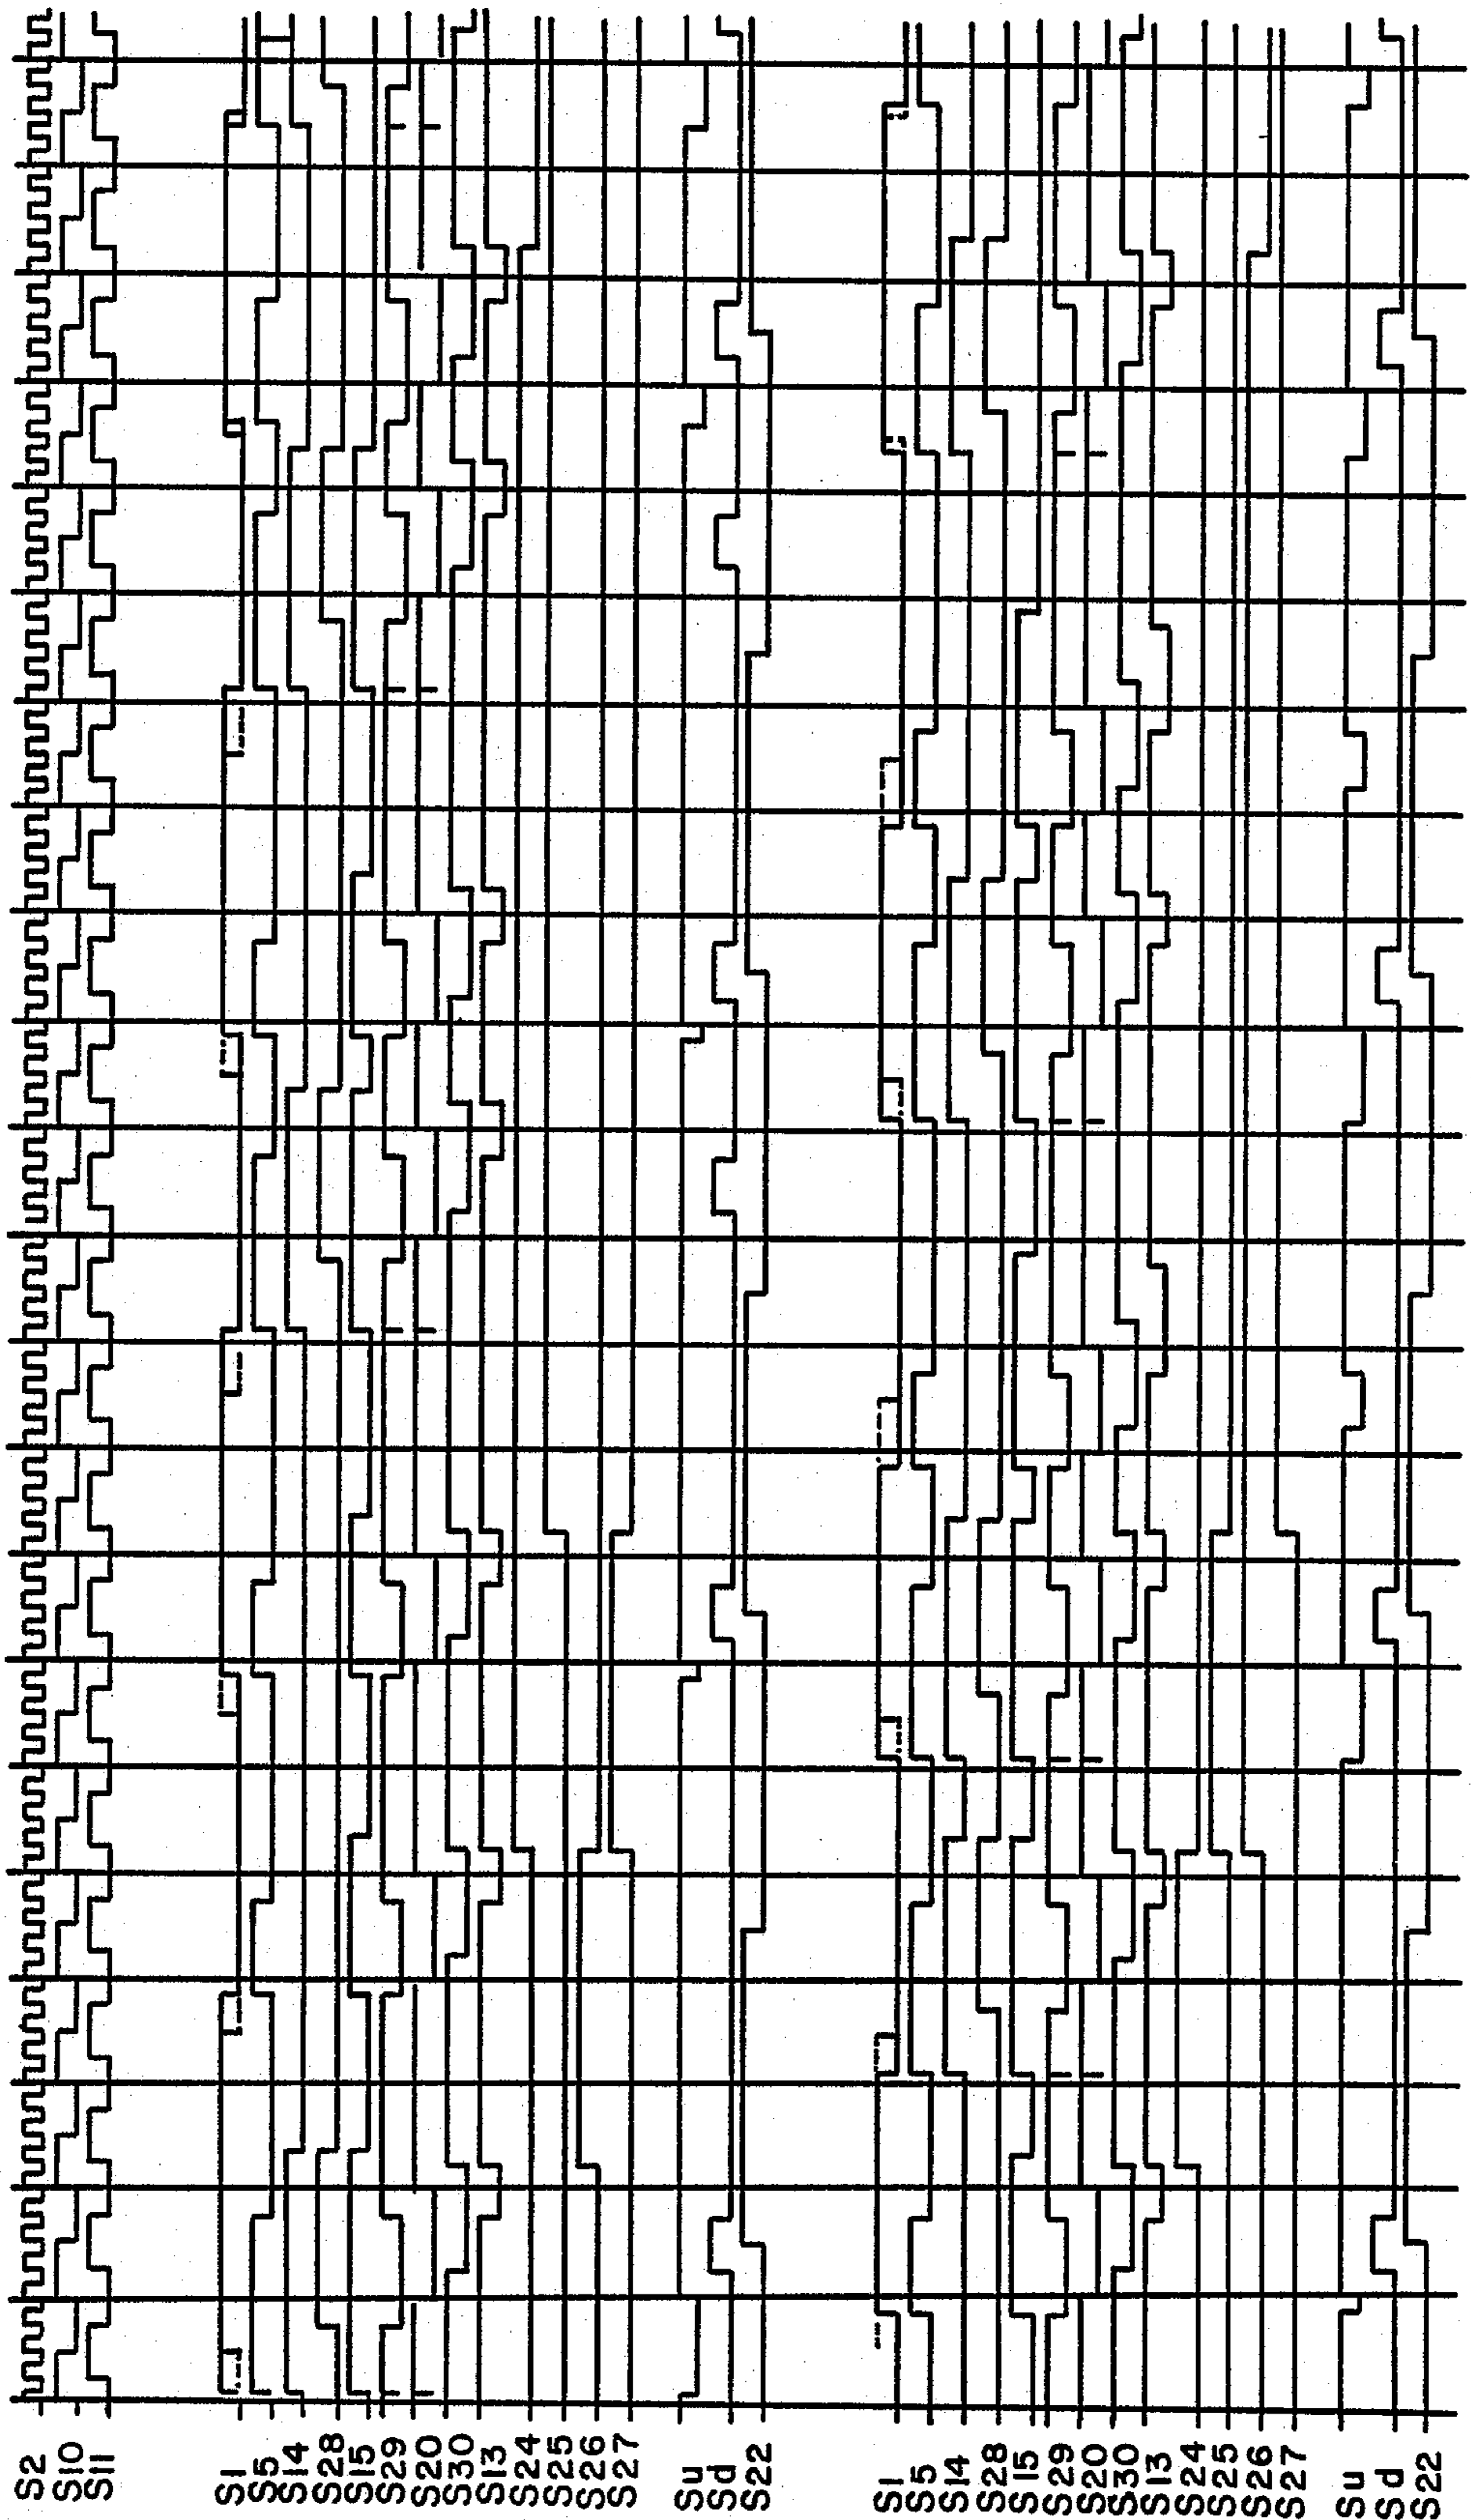 S2
S10
S11
S1
S5
S14
S28
S15
S29
S20
S30
S13
S24
S25
S26
S27
Su
Sd
S22
S1
S5
S14
S28
S15
S29
S20
S30
S13
S24
S25
S26
S27
Su
Sd
S22